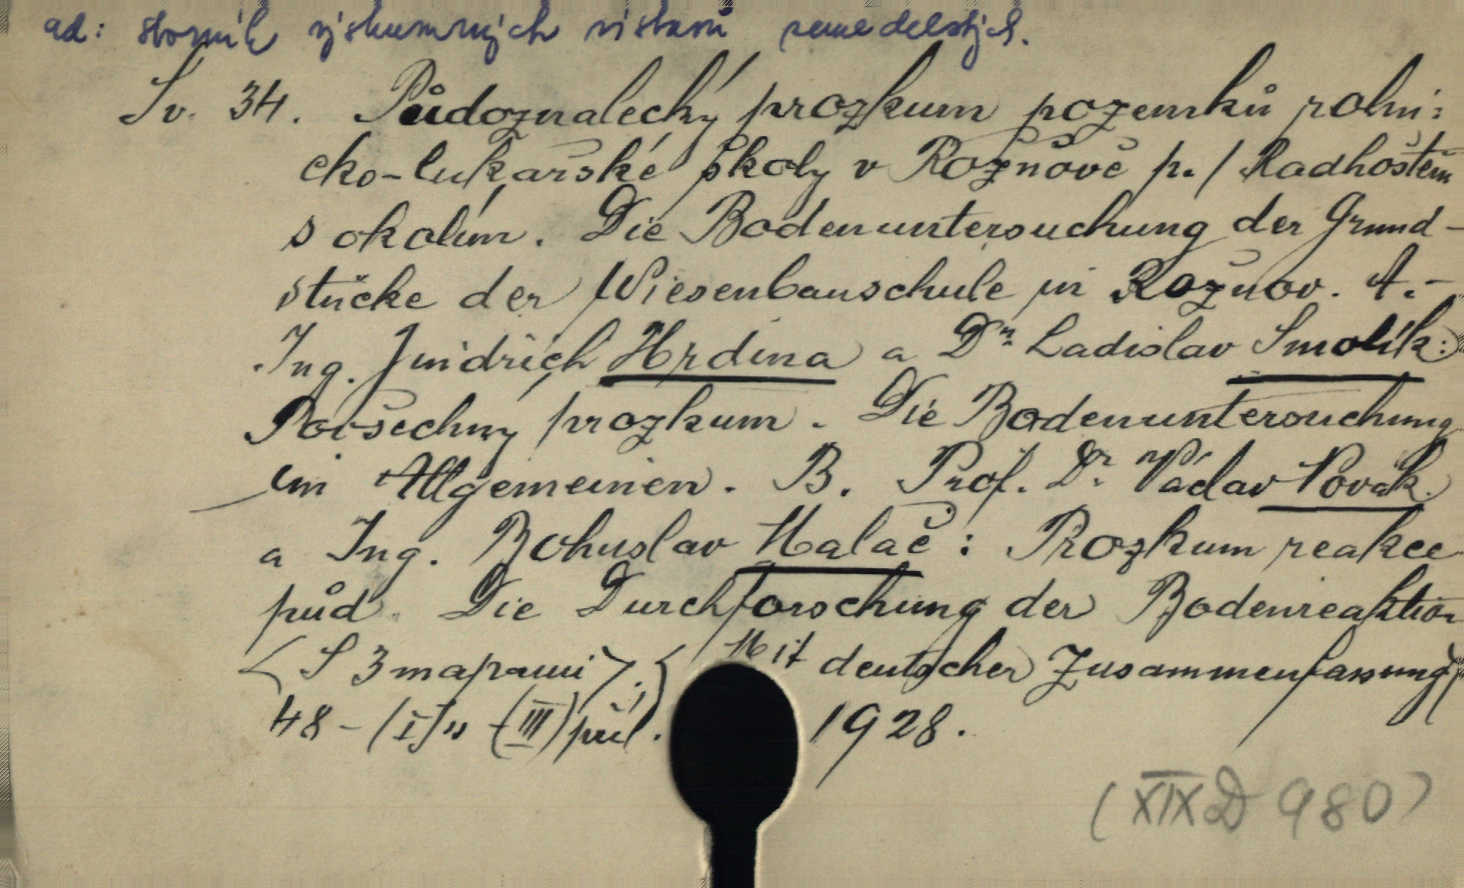 ad: sborník výskumných ústavů zemědělských.
Sv. 34. Půdoznalecký prozkum pozemků rolni:
cko-lukařské školy v Rožnově p./Radhoštěm
s okolím. Die Bodenuntersuchung der Grund-
stücke der Wiesenbauschule in Rožnov. A.-
Ing. Jindřich Hrdina a Dr. Ladislav Smolík:
Povšechný prozkum. Die Bodenuntersuchung
im Allgemeinen. B. Prof. Dr. Václav Novák
a Ing. Bohuslav Halač: Prozkum reakce
půd. Die Durchforschung der Bodenreaktion
<S 3 mapami>. Mit deutscher Zusammenfassung
48-(I)s -(III) příl. 1928.
(XIX D 980)